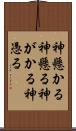 神懸かる
神懸る神
がかる神
憑る